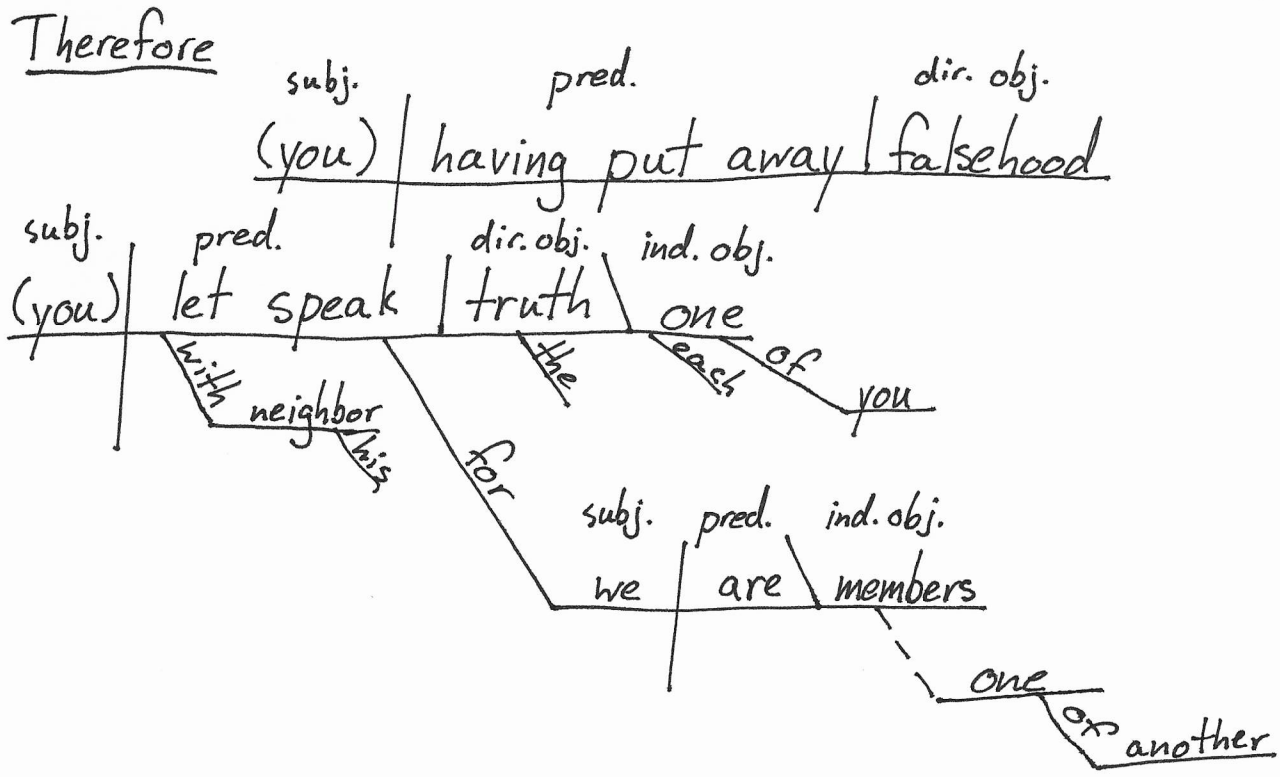 Therefore
subj. pred. dir. obj.
(you) having put away falsehood
subj. pred. dir. obj. ind. obj.
(you) let speak truth one
with the each of
you
neighbor
his
for
subj. pred. ind. obj.
we are members
one
of
another